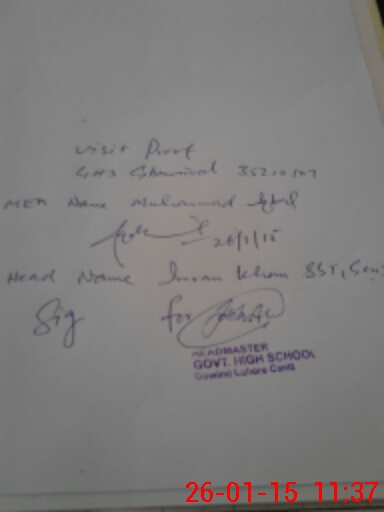 Visit Proof
GHS 35210107
MEA Name Muhammad Iqbal
26/1/15
Head Name Imran Khan SST, 
Sig for
HEADMASTER
GOVT. HIGH SCHOOL
Guwind Lahore Cantt
26-01-15 11:37